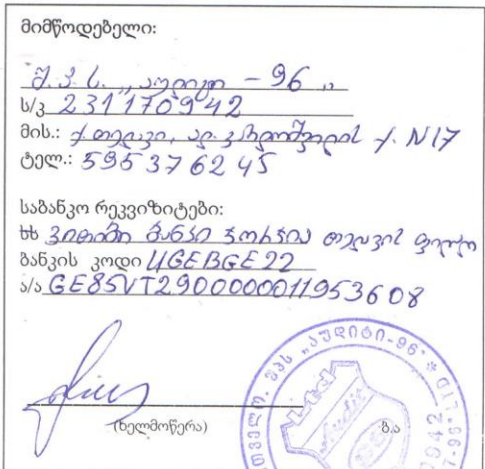 მიმწოდებელი:
შ.პ.ს. „აუდიტი - 96„
ს/კ 231170942
მის.: ქ. თელავი, ალ. ყაზბეგის ქ. N17
ტელ.: 595 37 62 45
საბანკო რეკვიზიტები:
სს ვითიბი ბანკი ჯორჯია თელავის ფილ
ბანკის კოდი UGEBGE22
ა/ა GE85VT2900000011953608
(ხელმოწერა)
ბ.ა
შპს „აუდიტი-96“
Ltd
Audit